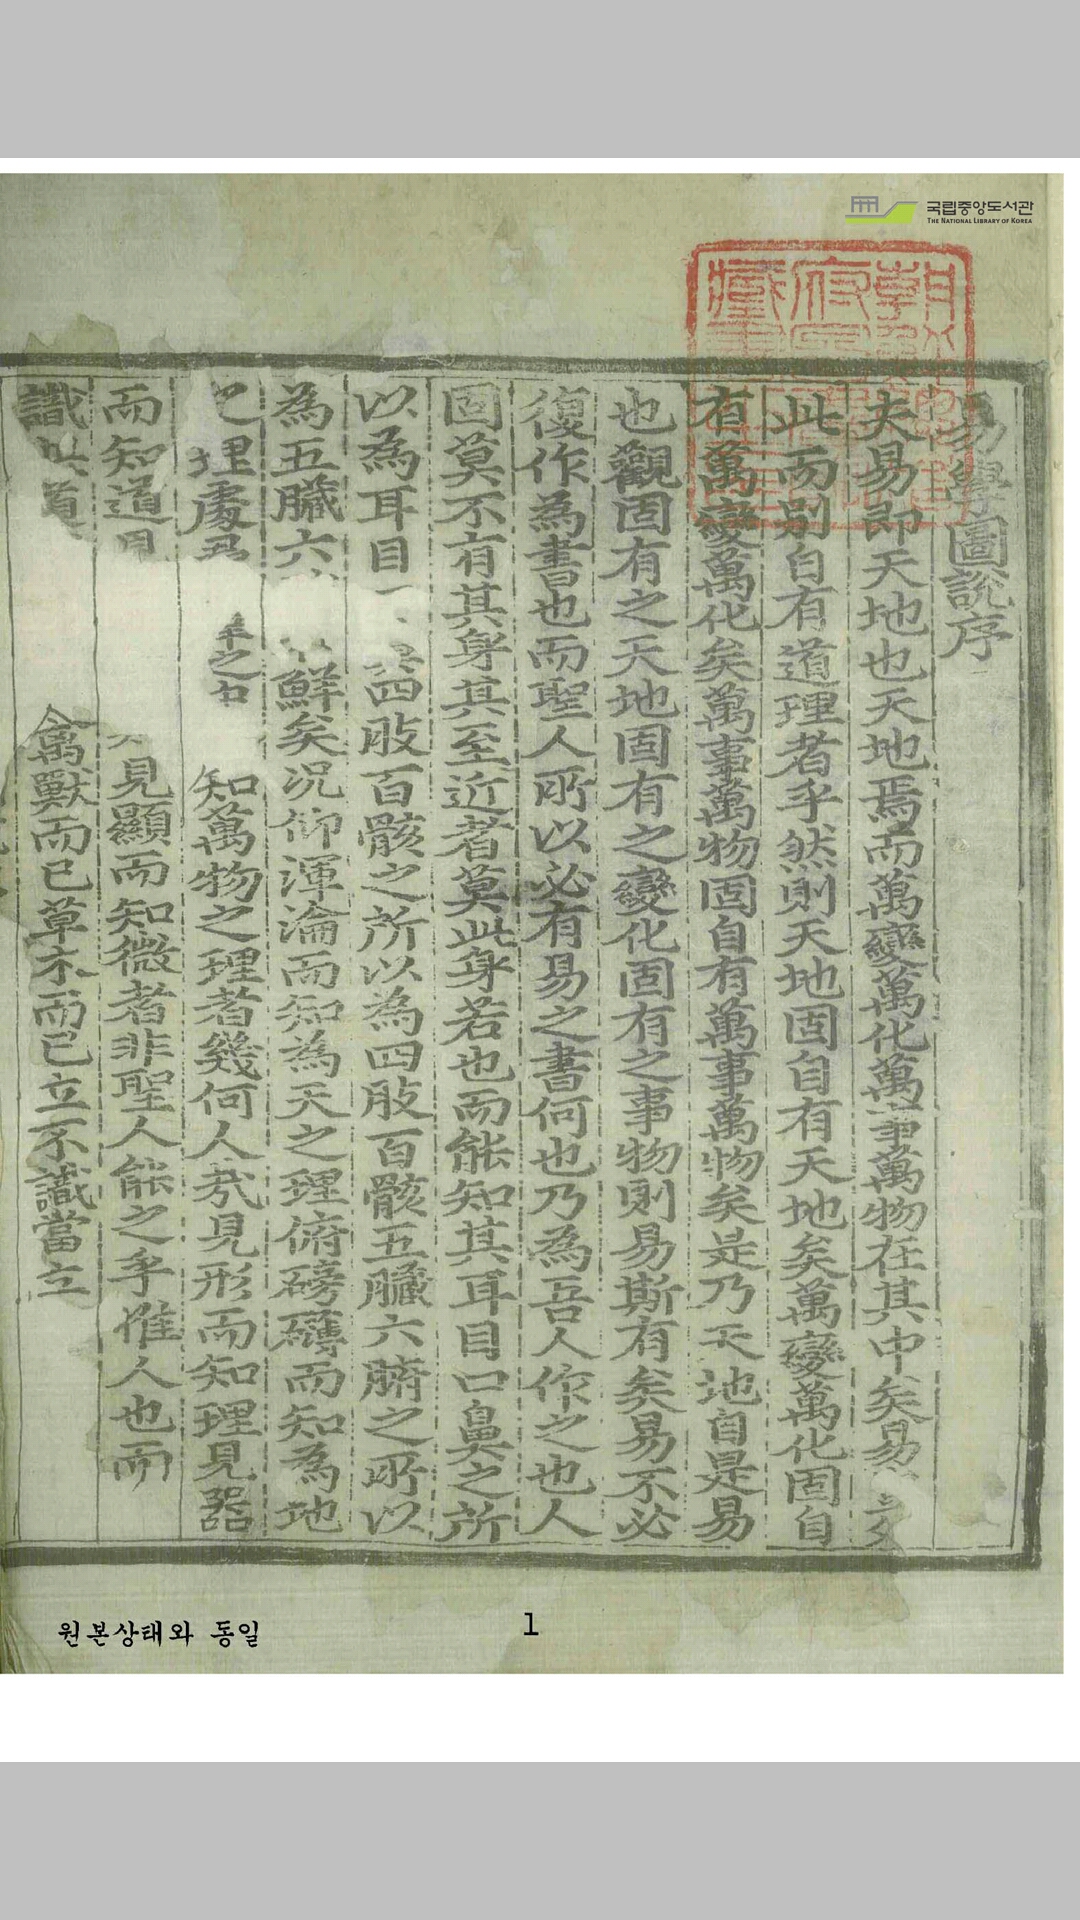 국립중앙도서관
THE NATIONAL LIBRARY OF KOREA
易學圖說序
夫易卽天地也天地焉而萬變萬化萬事萬物在其中矣易
此而別自有道理者乎然則天地固自有天地矣萬變萬化固自
有萬變萬化矣萬事萬物固自有萬事萬物矣是乃天地自是易
也觀固有之天地固有之變化固有之事物則易斯有矣易不必
復作為書也而聖人所以必有易之書何也乃為吾人作之也人
固莫不有其身其至近者莫此身若也而能知其耳目口鼻之所
以為耳目 四肢百骸之所以為四肢百骸五臟六腑之所以
為五臟六 鮮矣況仰渾淪而知為天之理俯磅礴而知為地
之理處 之 知萬物之理者幾何人哉見形而知理見器
而知道 見顯而知微者非聖人能之乎惟人也而
識 道 禽獸而已草木而已立不識當立
원본상태와 동일
1